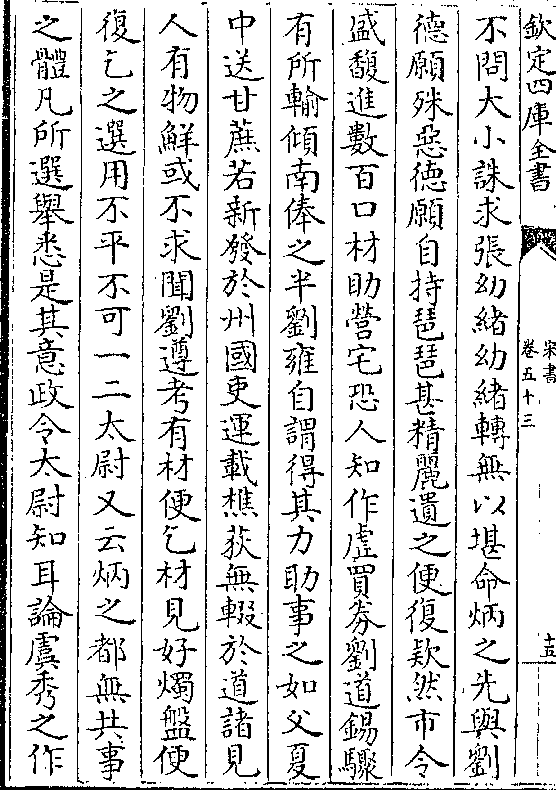 欽定四庫全書
宋書
卷五十三
十五
不問大小誅求張幼緒幼緒轉無以堪命炳之先與劉
德願殊惡德願自持琵琶甚精麗遺之便復欵然市令
盛馥進數百口材助營宅恐人知作虛買券劉道錫驟
有所輸傾南俸之半劉雍自謂得其力助事之如父夏
中送甘蔗若新發於州國吏運載樵荻無輟於道諸見
人有物鮮或不求聞劉遵考有材便乞材見好燭盤便
復乞之選用不平不可一二太尉又云炳之都無共事
之體凡所選舉悉是其意政令太尉知耳論虞秀之作